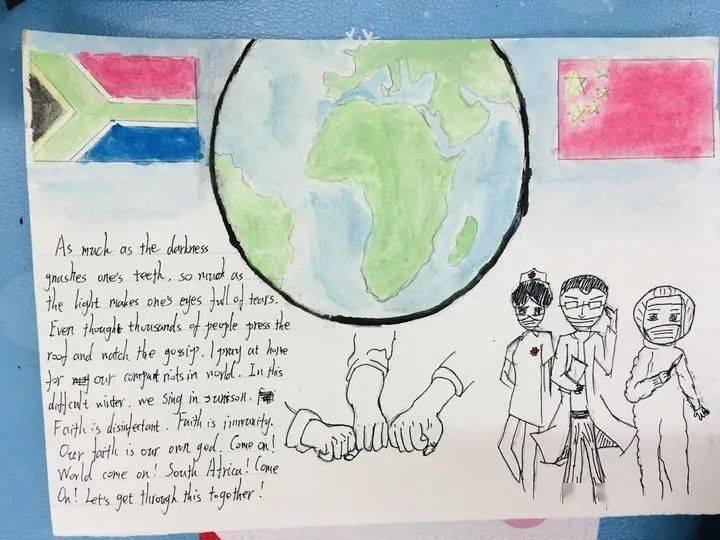 As much as the darkness
gnashes one's teeth, so much as
the light makes one's eyes full of tears.
Even thought thousands of people press the
roof and watch the gossip. I pray at home
for our compatriots in world. In this
difficult winter. we sing in sunison.
Faith is disinfectant. Faith is immunity.
Our faith is our own god. Come on!
World come on! South Africa! Come
On! Let's get through this together!